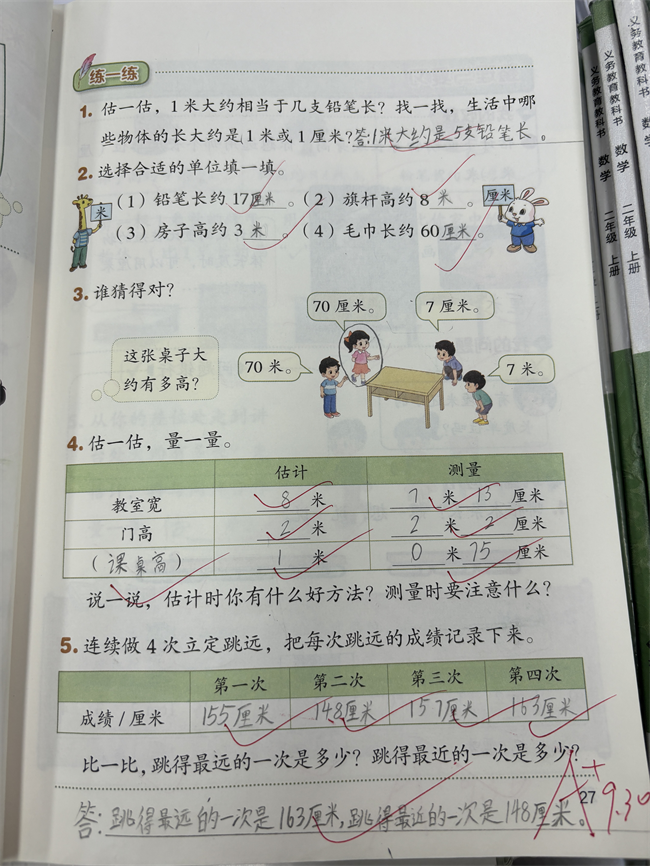 练一练
1. 估一估，1米大约相当于几支铅笔长？找一找，生活中哪
些物体的长大约是1米或1厘米？答：1米大约是5支铅笔长。
2. 选择合适的单位填一填。
米
（1）铅笔长约17厘米。（2）旗杆高约8米。
厘米
（3）房子高约3米。（4）毛巾长约60厘米。
3. 谁猜得对？
70厘米。
7厘米。
这张桌子大
约有多高？
70米。
7米。
4. 估一估，量一量。
估计 测量
教室宽 8米 7米13厘米
门高 2米 2米2厘米
（课桌高） 1米 0米75厘米
说一说，估计时你有什么好方法？测量时要注意什么？
5. 连续做4次立定跳远，把每次跳远的成绩记录下来。
第一次 第二次 第三次 第四次
成绩/厘米 155厘米 148厘米 157厘米 163厘米
比一比，跳得最远的一次是多少？跳得最近的一次是多少？
答：跳得最远的一次是163厘米，跳得最近的一次是148厘米。
27
A+
9.30
义务教育教科书
数学
二年级 上册
义务教育教科书
数学
二年级 上册